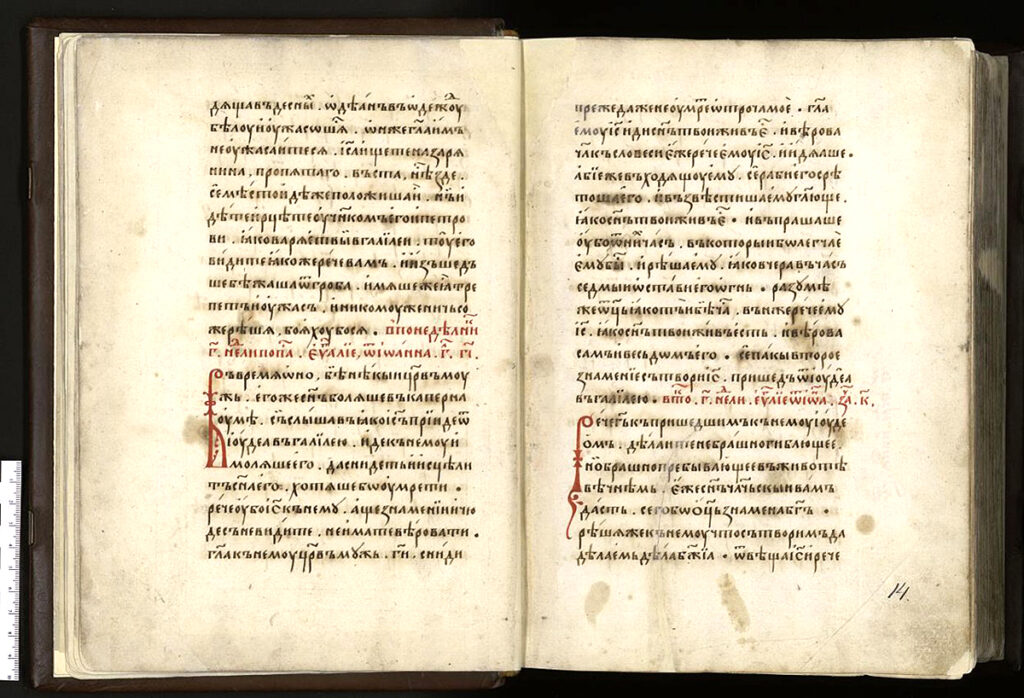 дѧща въ деснꙑ . ѡдѣанъ въ ѡдежоу
бѣлоу и оужасѡшѧ . ѡнже гла имъ
не оужасаитесѧ . іс҃а ищете назарѧ
нина , пропѧтаго . въста , нѣ зде .
се мѣсто идѣже положиша и . нъ и
дѣте и рцѣте оучн҃комъ его и петро
ви . ꙗко варѧетъ вы въ галілеи . тоу его
видите ꙗкоже рече вамъ . и изъшед
ше бѣжаша ѿ гроба . имѧше же ѧ тре
петъ и оужасъ . и никомоуже ничьсо
же рѣшѧ , боѧхоу бо сѧ . в понедѣлни
г҃ . нели по па . еу҃алїе , ѿ іѡанна . г҃ . гі҃ .
въ времѧ ѡно , бѣ некыи цр҃въ моу
жь . его же сн҃ъ болѧше въ каперна
оумѣ . съ слышавъ ꙗко іс҃ъ прїиде ѿ
їоудеа въ галїлею . иде къ немоу и
молѧше его . да снидетъ и исцѣли
тъ сн҃а его . хотѧше бо оумрети .
рече оубо іс҃ къ нему . аще знаменїи и чю
десъ не видите . не имате вѣровати .
гл҃а къ немоу цр҃въ мужь . ги҃ . сниди
преже даже не оумретъ отроча мое . гл҃а
емоу іс҃ иди сн҃ъ твои живъ е҃ . и вѣрова
чл҃къ словеси еже рече емоу іс҃ . и идѧаше .
абїе же въходѧщоу ему . се раби его срѣ
тоша его . и възвѣстиша ему гл҃юще .
ꙗко сн҃ъ твои живъ е҃ . и въпрашаше
оубо ѿ них часъ . въ которыи болегчае
ему бы҃ . и рѣша ему . ꙗко вчера въ часъ
седмыи ѡстави его огнь . разумѣ
же ѡц҃ь ꙗко тъ бѣ чс҃ъ . вънже рече ему
іс҃ . ꙗко сн҃ъ твои живъ есть . и вѣрова
самъ и весь дѡмъ его . се пакы второе
знаменїе сътвори іс҃ . пришедъ ѿ іоудеа
въ галїлею . вто . г҃ . нели . еу҃лїе ѿ іѡа , зл҃а . к҃ .
рече гь҃ къ пришедшимъ къ немоу іоуде
ѡмъ . дѣлаите не брашно гиблющее
но брашно пребывающее въ животѣ
вѣчнѣмь . еже сн҃ъ члч҃ьскы и вамъ
дасть . сего бо ѡц҃ь знамена бг҃ъ .
рѣшѧ же к немоу что сътворимъ да
дѣлаемь дѣла бж҃іа . ѿвѣща іс҃ и рече
14.